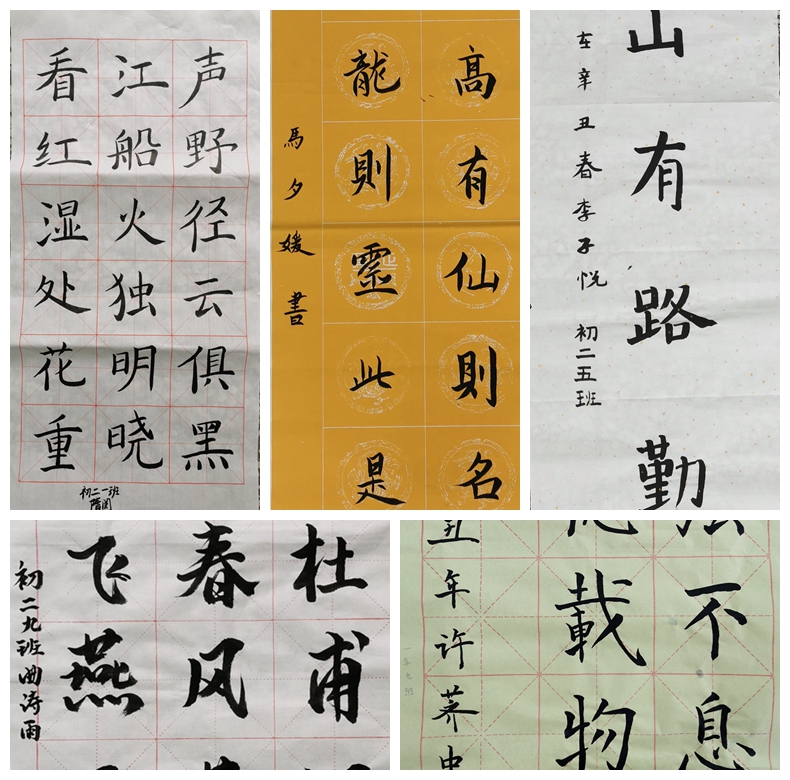 声野径云俱黑
江船火独明晓
看红湿处花重
初二一班
高有仙則名
龍則靈此是
馬夕媛書
山有路勤
在辛丑春李子悦 初二五班
杜甫
春风
飞燕
初二九班曲涛雨
不息
載物
丑年许荞